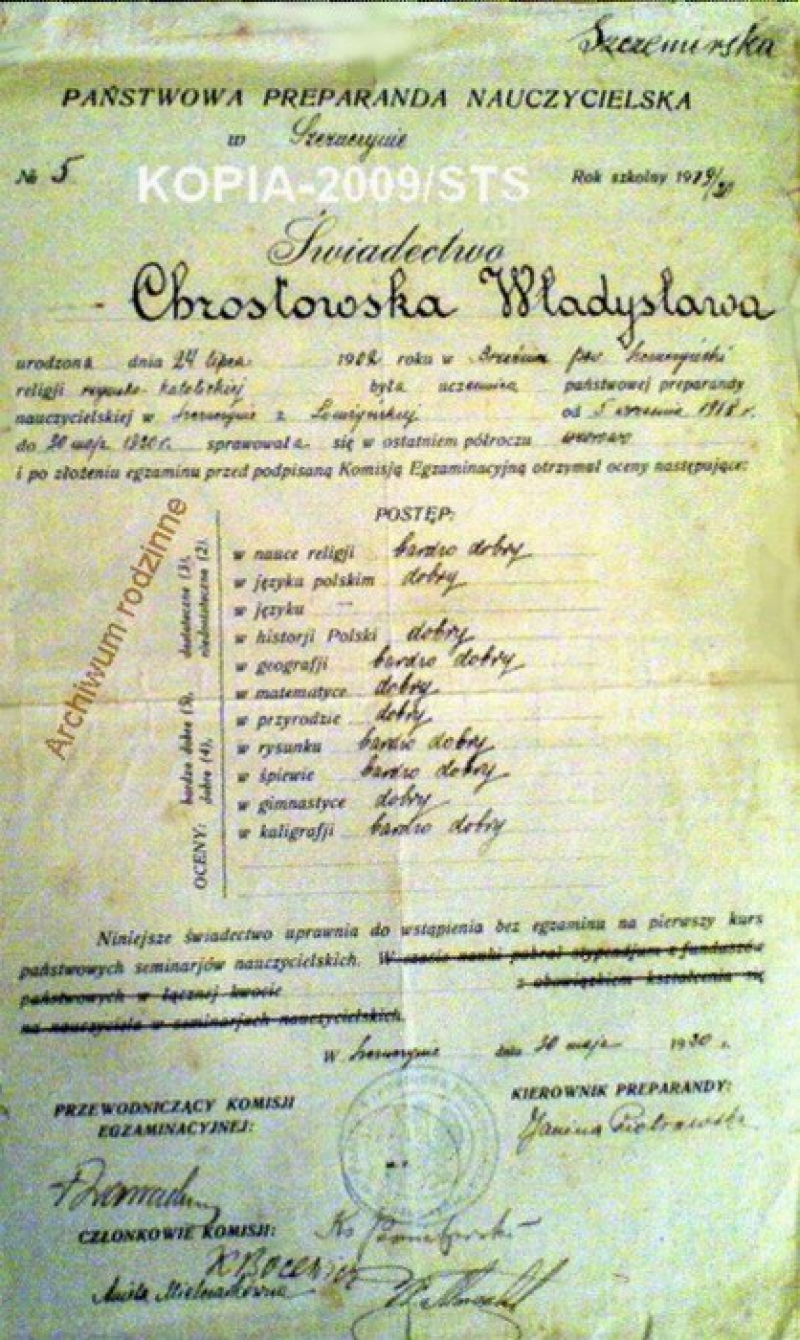 Szczemirska
PAŃSTWOWA PREPARANDA NAUCZYCIELSKA
w Szczuczynie
№ 5
KOPIA-2009/STS
Rok szkolny 1919/20
Świadectwo
Chrostowska Władysława
urodzona dnia 24 lipca 1902 roku w pow Szczuczyński
religji rzymsko katolickiej była uczennica państwowej preparandy
nauczycielskiej w Szczuczynie z. Łomżyńskiej od 5 września 1918 r.
do 20 maja 1920 r. sprawowała się w ostatniem półroczu wzorowo
i po złożeniu egzaminu przed podpisaną Komisją Egzaminacyjną otrzymał oceny następujące:
POSTĘP:
w nauce religji bardzo dobry
w języku polskim dobry
w języku —
w historji Polski dobry
w geografji bardzo dobry
w matematyce dobry
w przyrodzie dobry
w rysunku bardzo dobry
w śpiewie bardzo dobry
w gimnastyce dobry
w kaligrafji bardzo dobry
OCENY: bardzo dobre (5), dostateczne (3),
dobre (4), niedostateczne (2).
Archiwum rodzinne
Niniejsze świadectwo uprawnia do wstąpienia bez egzaminu na pierwszy kurs
państwowych seminarjów nauczycielskich. W czasie nauki pobrał stypendjum z funduszów
państwowych w łącznej kwocie z obowiązkiem kształcenia się
na nauczyciela w seminarjach nauczycielskich.
W Szczuczynie dnia 20 maja 1920 r.
PRZEWODNICZĄCY KOMISJI
EGZAMINACYJNEJ:
KIEROWNIK PREPARANDY:
Janina Piotrowska
CZŁONKOWIE KOMISJI:
Ks